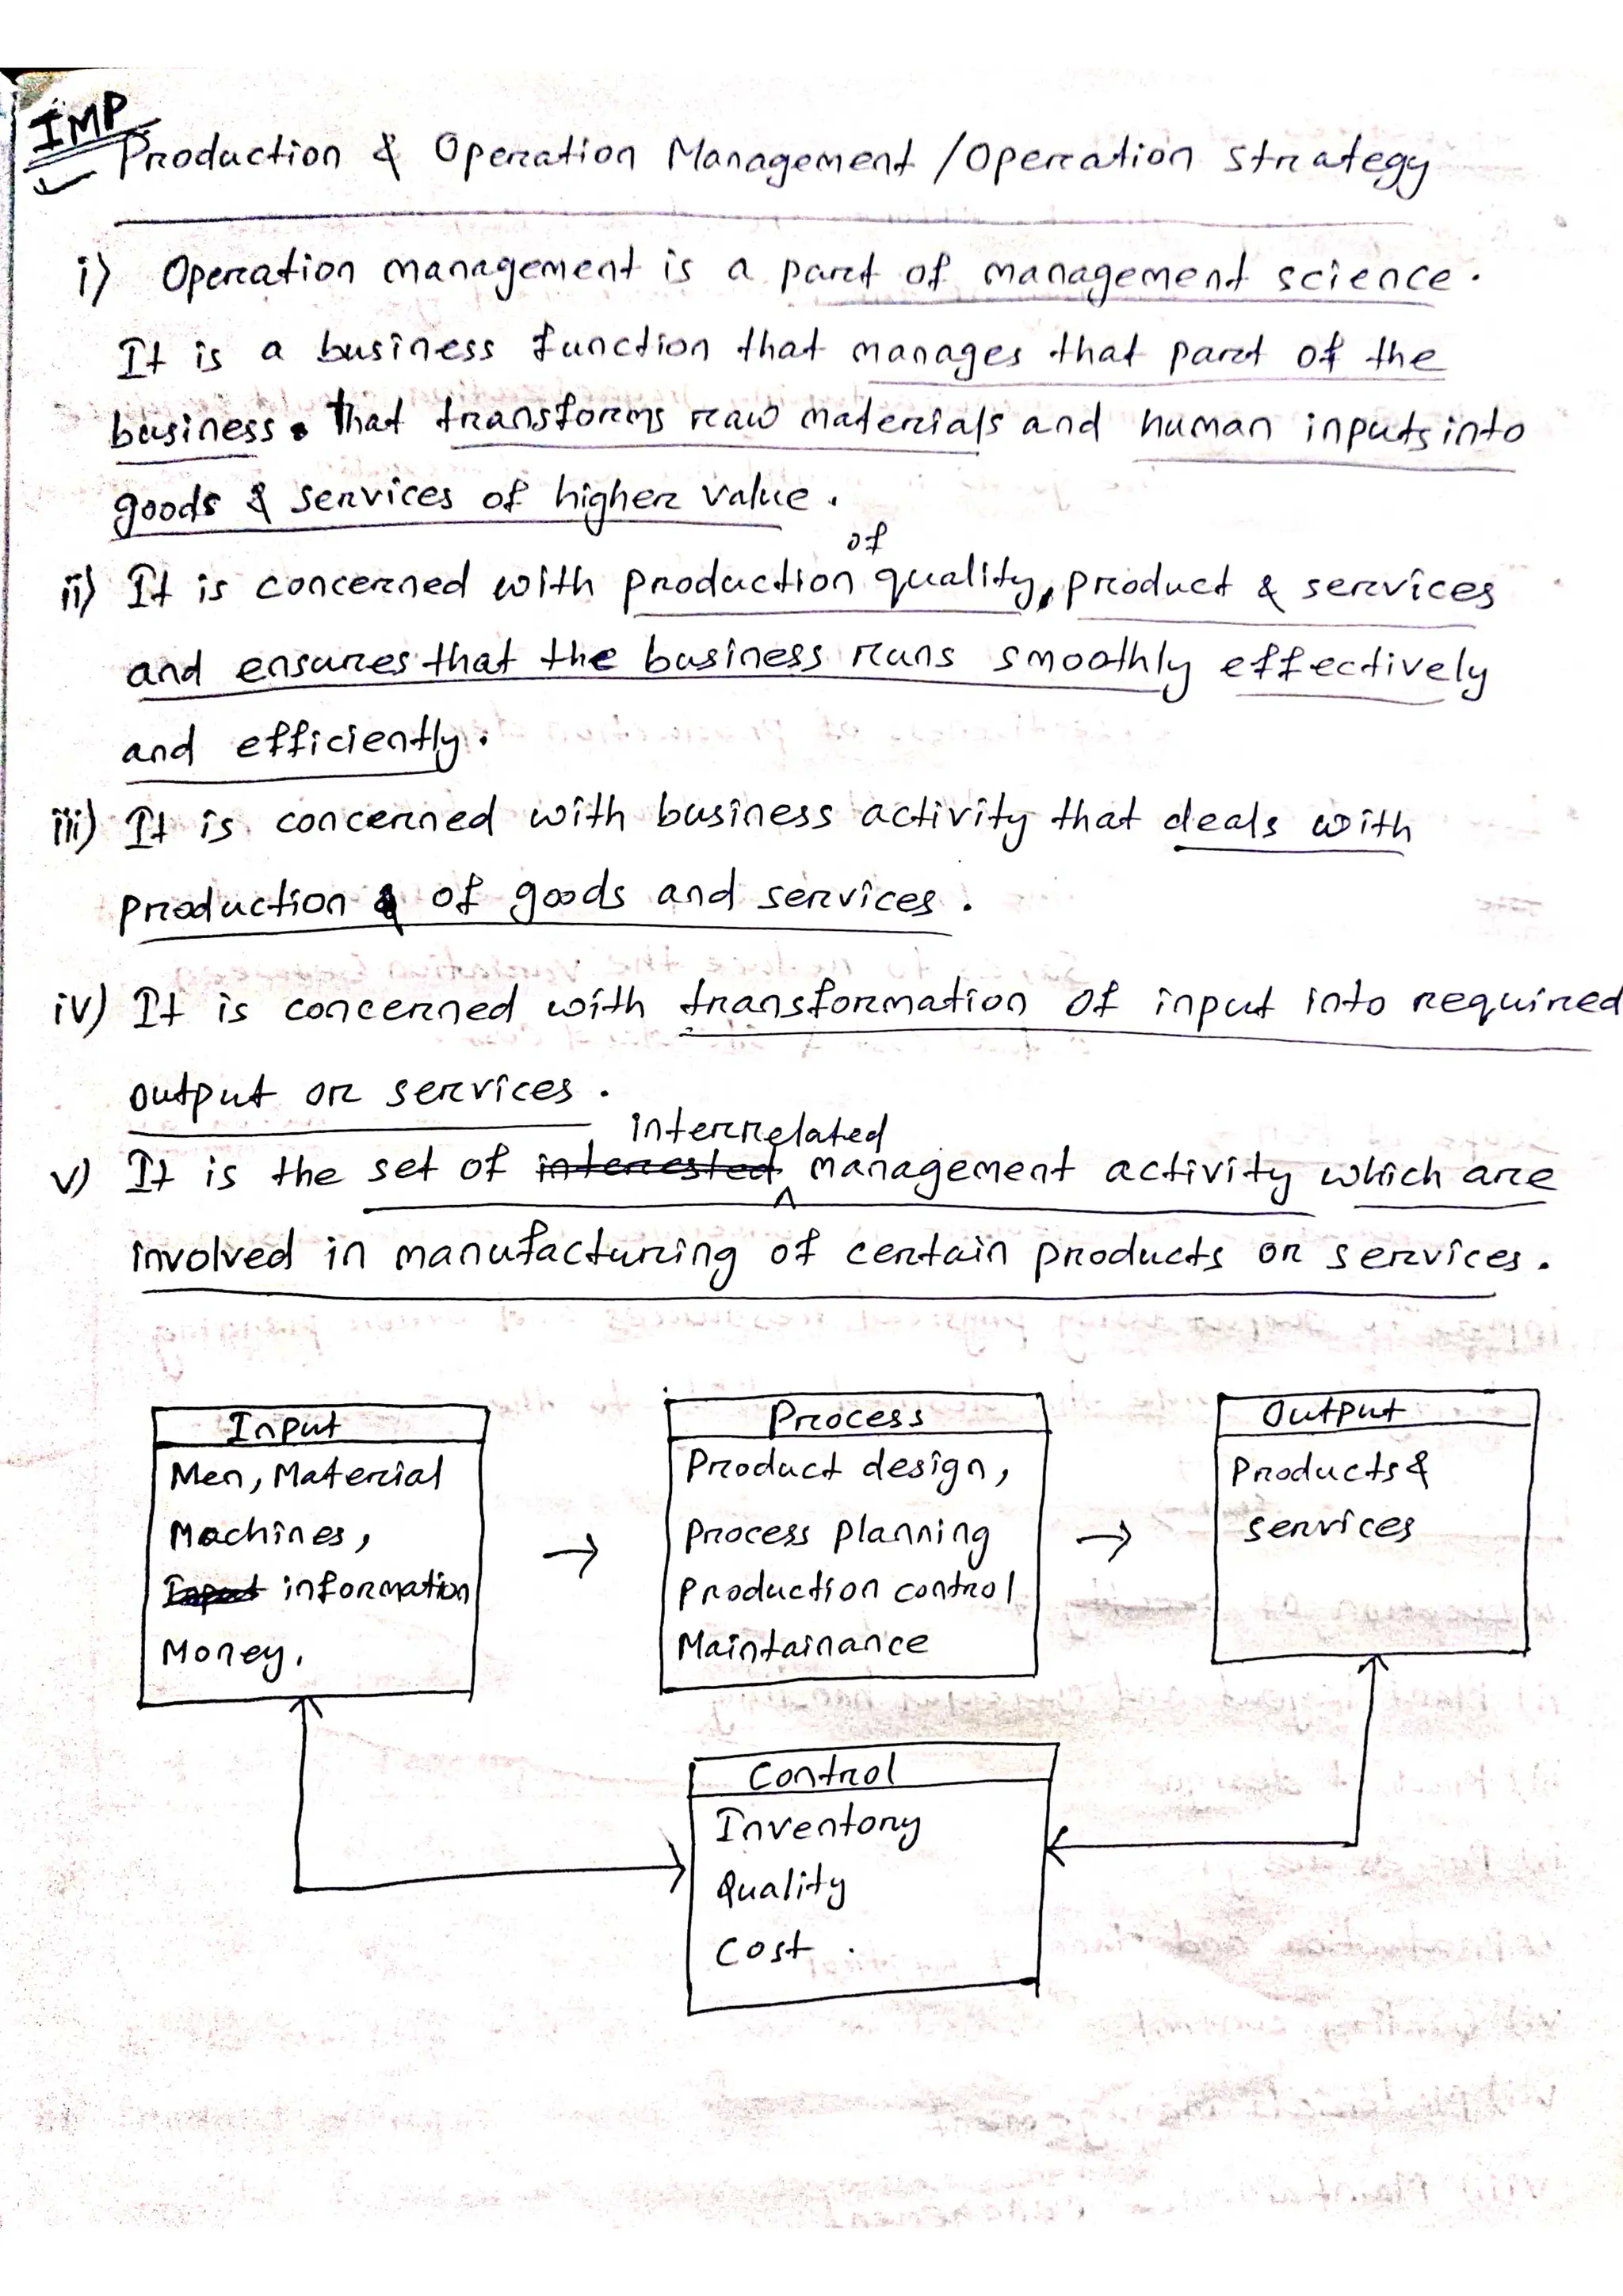 IMP
Production & Operation Management / Operation Strategy
i) Operation management is a part of management science.
It is a business function that manages that part of the
business. that transforms raw materials and human inputs into
goods & services of higher value.
of
ii) It is concerned with production quality, product & services
and ensures that the business runs smoothly effectively
and efficiently.
iii) It is concerned with business activity that deals with
production & of goods and services.
iv) It is concerned with transformation of input into required
output or services.
interrelated
v) It is the set of interested management activity which are
involved in manufacturing of certain products or services.
Input
Men, Material
Machines,
Input information
Money.
Process
Product design,
Process planning
Production control
Maintainance
Output
Products &
services
Control
Inventory
Quality
Cost